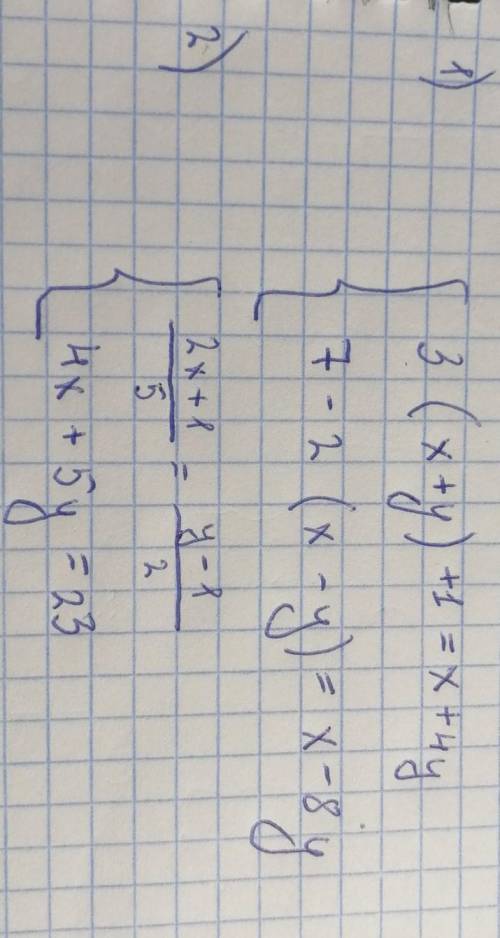 1) { 3 (x+y) +1 = x+4y
7 - 2 (x - y) = x - 8y
2) { (2x+1)/5 = (y-1)/2
4x + 5y = 23